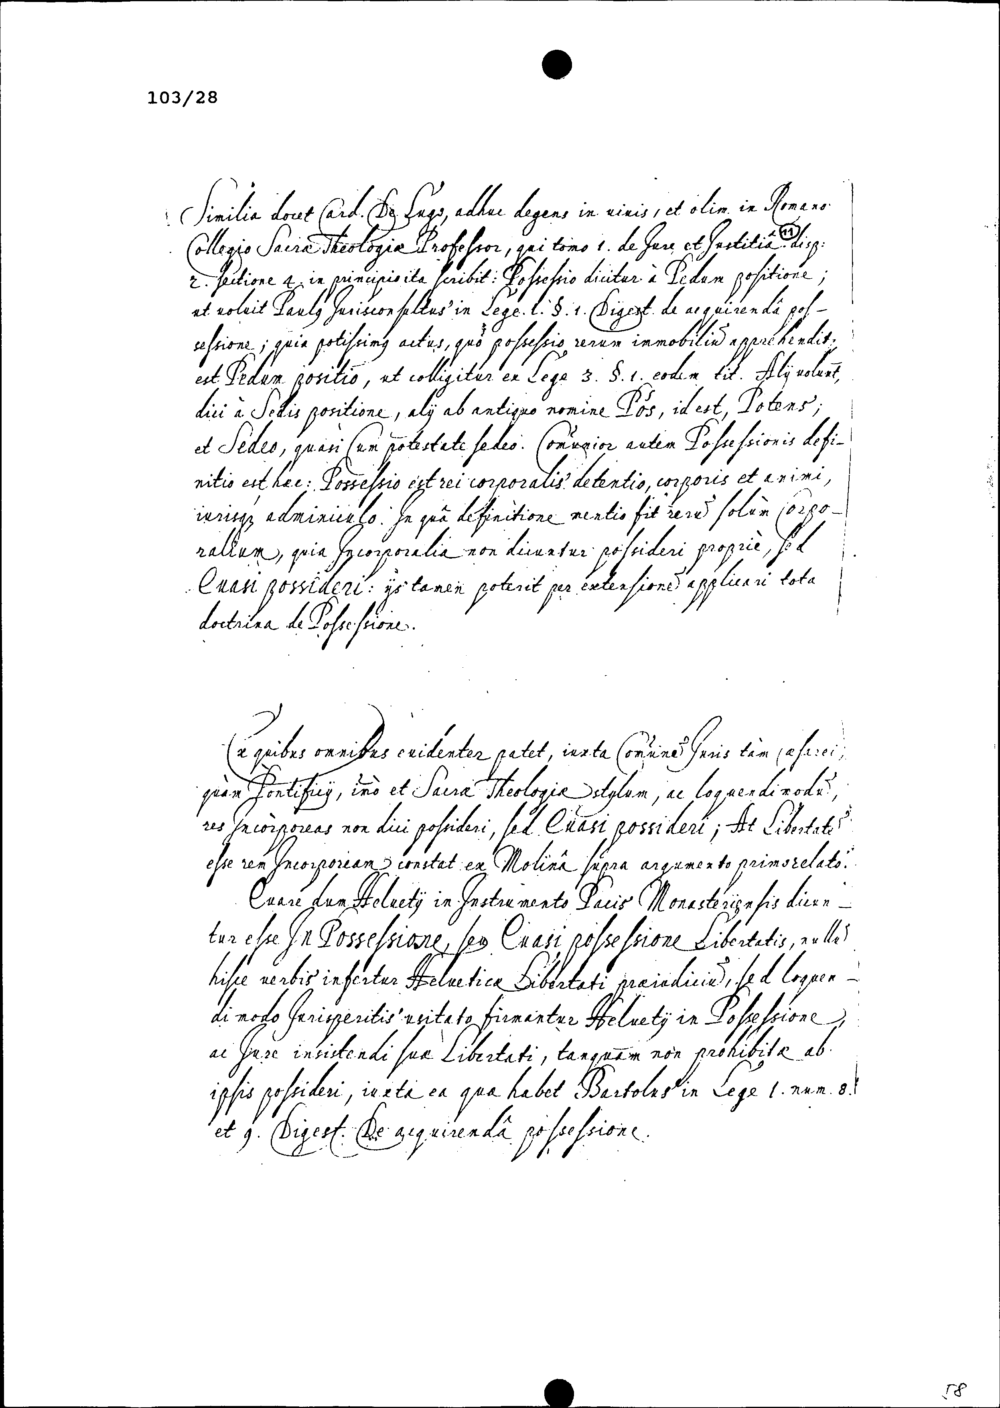 103/28
Similia docet Card. De Lugo, adhuc degens in vivis, et olim in Romano
Collegio Sacræ Theologiæ Professor, qui tomo 1. de Jure et Justitiâ disp:
11
2. sectione 1. in principio ita scribit: Possessio dicitur à Pedum positione;
ut voluit Paulus Jurisconsultus in Lege. 1. §. 1. Digest. de acquirendâ pos-
sessione; quia potissimus actus, quo possessio rerum immobiliū apprehenditur,
est Pedum positio, ut colligitur ex Lege 3. §. 1. eodem tit. Alij volunt,
dici à Sedis positione, alij ab antiquo nomine Pos, id est, Potens;
et Sedeo, quasi Cum potestate sedeo. Com̄unior autem Possessionis defi-
nitio est hæc: Possessio est rei corporalis detentio, corporis et animi,
iurisq; adminiculo. In quâ definitione mentio fit rerū solùm Corpo-
ralium, quia Incorporalia non dicuntur possideri propriè, sed
Quasi possideri: ijs tamen poterit per extensionē applicari tota
doctrina de Possessione.
Ex quibus omnibus evidenter patet, iuxta Com̄unē Juris tàm Cæsarei,
quàm Pontificij, imò et Sacræ Theologiæ stylum, ac loquendi modū,
res Incorporeas non dici possideri, sed Quasi possideri; At Libertatē
esse rem Incorpoream constat ex Molinâ supra argumento primo relato.
Quare dum Helvetij in Instrumento Pacis Monasteriensis dicun-
tur esse In Possessione, seu Quasi possessione Libertatis, nullū
hisce verbis infertur Helveticæ Libertati præiudiciū, sed loquen-
di modo Jurisperitis usitato firmantur Helvetij in Possessione,
ac Jure insistendi suæ Libertati, tanquam non prohibitæ ab
ipsis possideri, iuxta ea quæ habet Bartolus in Lege 1. num. 8.
et 9. Digest. De acquirendâ possessione.
58